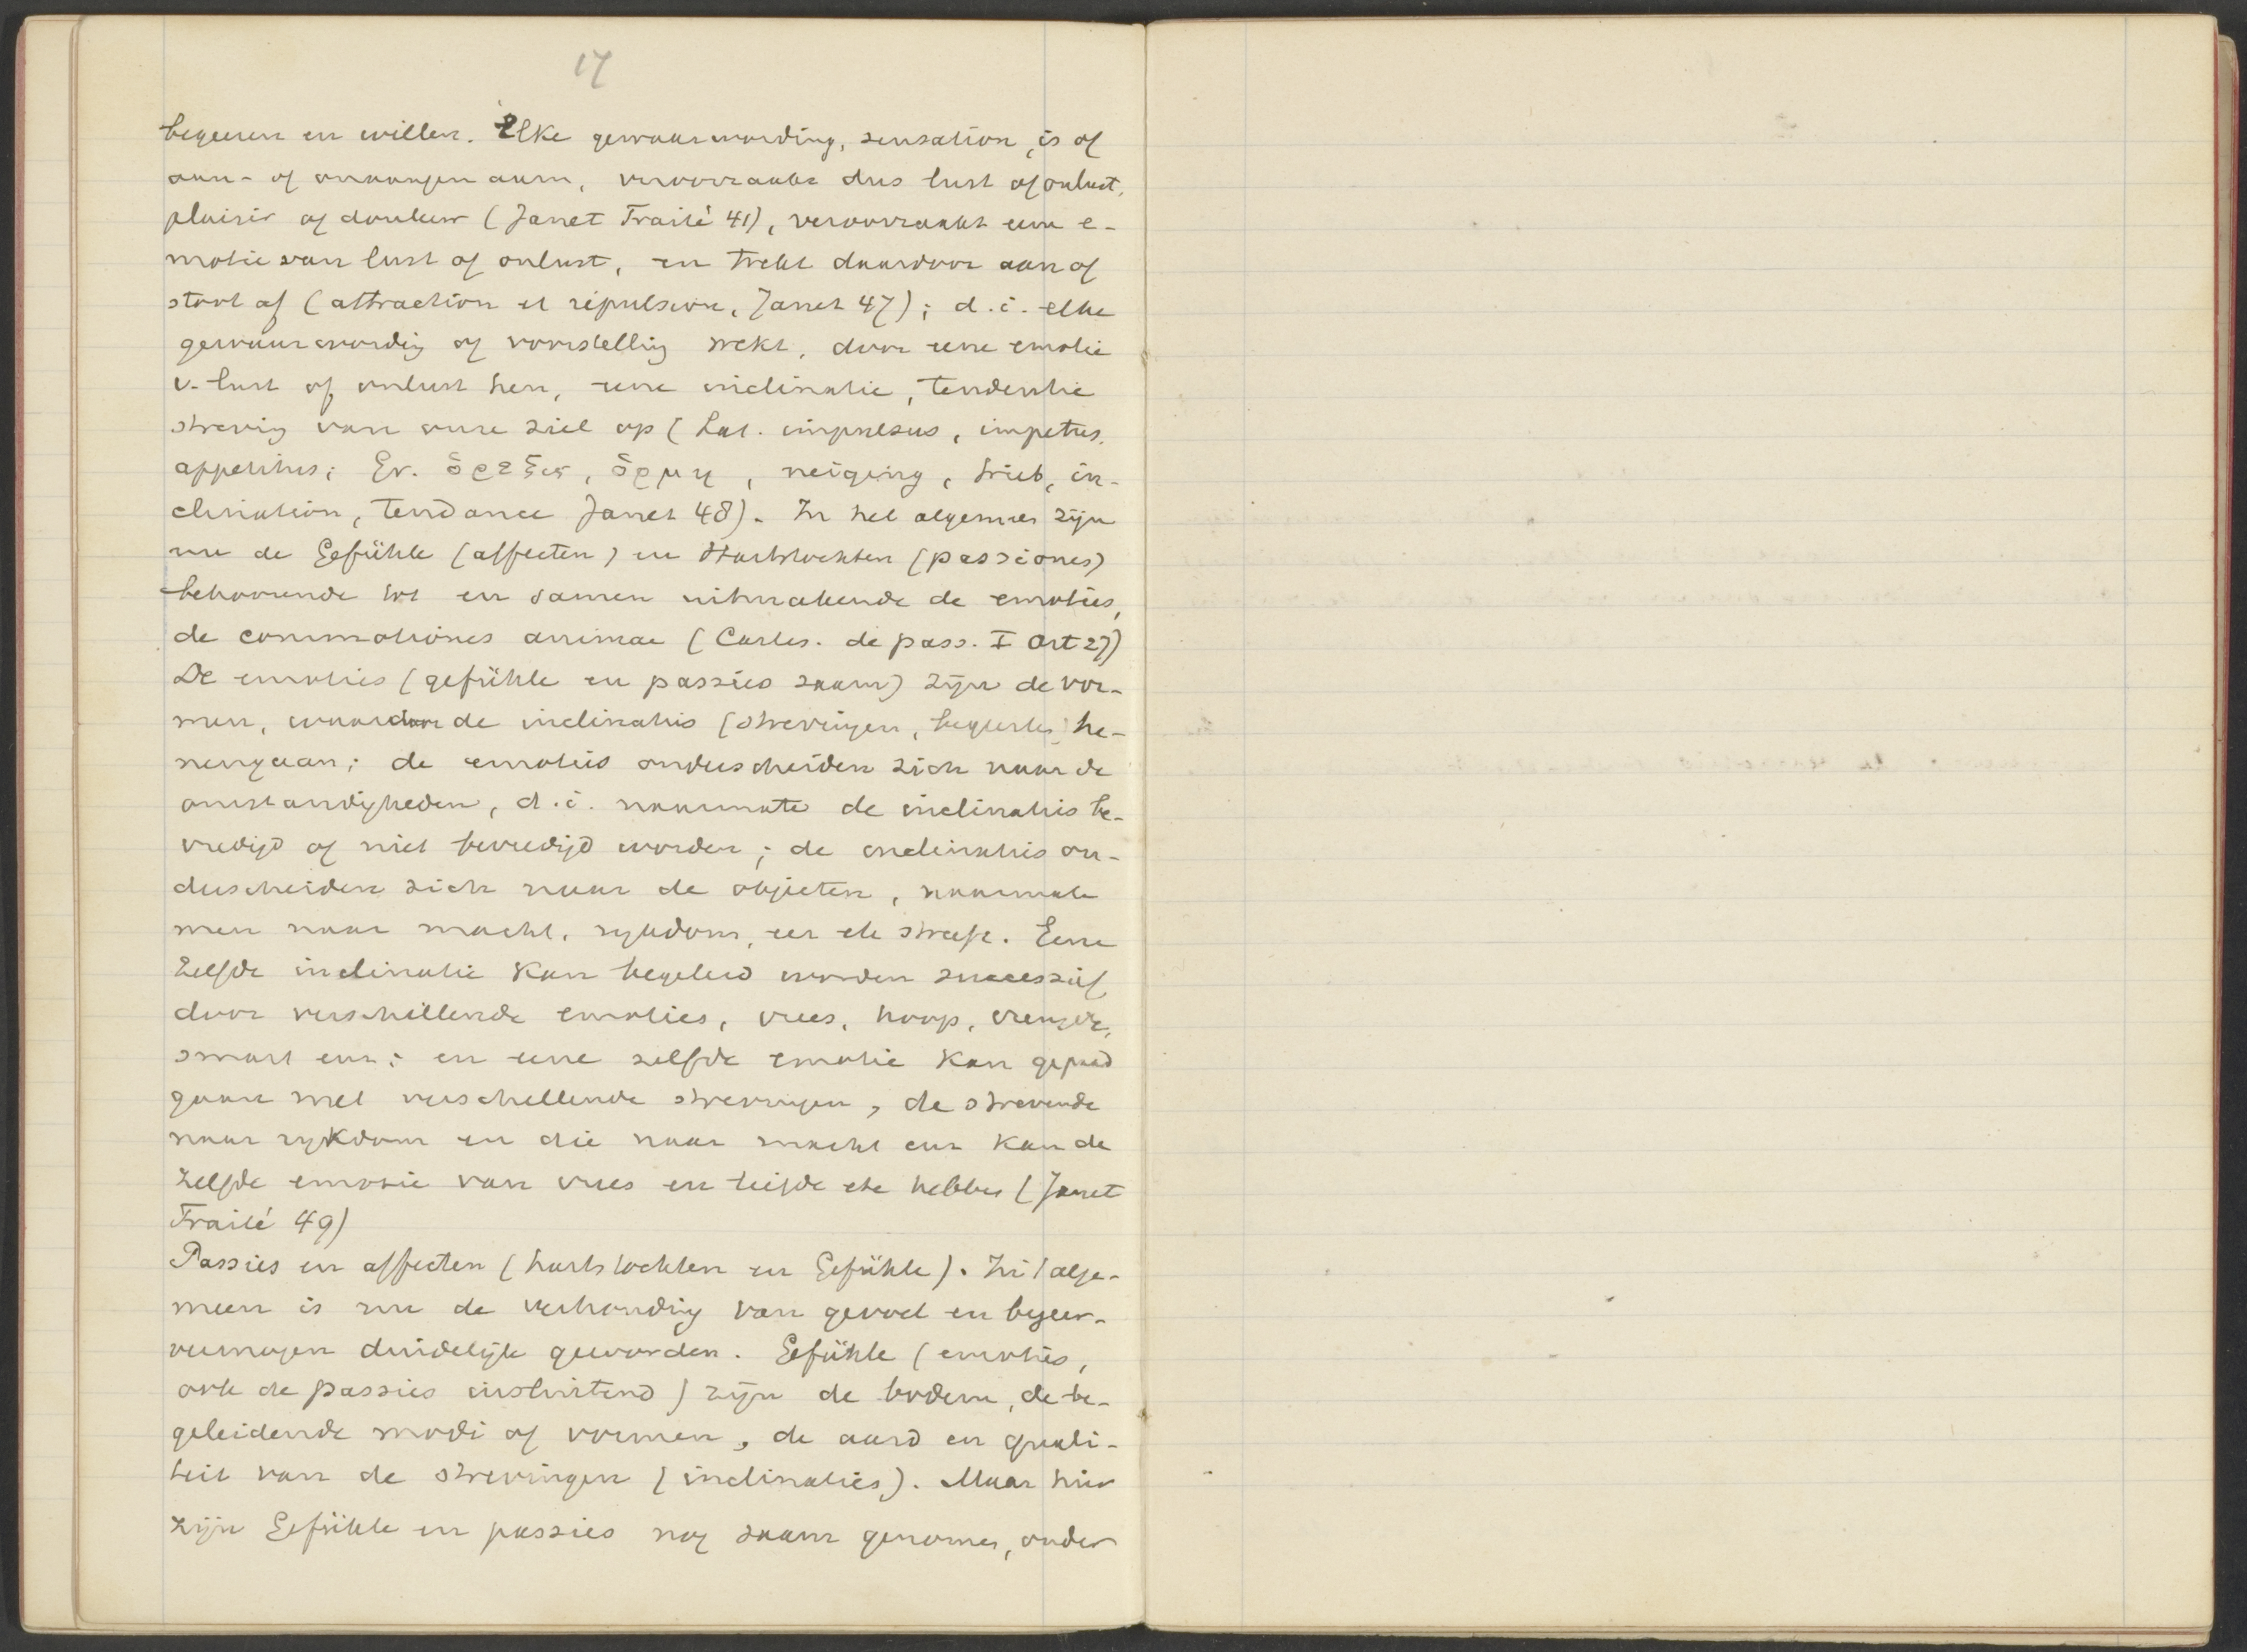 17
begeeren en willen. Elke gewaarwording, sensation, is of
aan- of onaangenaam, veroorzaakt dus lust of onlust,
plaisir of douleur (Janet Traité 41), veroorzaakt eene e-
motie van lust of onlust, en trekt daardoor aan of
stoot af (attraction et répulsion, Janet 47); d.i. elke
gewaarwording of voorstelling wekt, door eene emotie
v. lust of onlust hen, eene inclinatie, tendentie
streving van onze ziel op (Lat. impulsus, impetus,
appetitus; Gr. ὀρεξις, ὁρμη, neiging, trieb, in-
clination, tendance Janet 48). In het algemeen zijn
nu de Gefühle (affecten) en Hartstochten (passiones)
behoorende tot en samen uitmakende de emoties,
de commotiones animae (Cartes. de pass. I art 27)
De emoties (gefühle en passies saam) zijn de vor-
men, waardoor de inclinatis (strevingen, begeertes) he-
nengaan; de emoties onderscheiden zich naar de
omstandigheden, d.i. naarmate de inclinatis be-
vredigd of niet bevredigd worden; de inclinatis on-
derscheiden zich naar de objecten, naarmate
men naar macht, rijkdom, eer etc streeft. Eene
zelfde inclinatie kan begeleid worden successief
door verschillende emoties, vrees, hoop, vreugde,
smart enz; en eene zelfde emotie kan gepaard
gaan met verschillende strevingen, de strevende
naar rijkdom en die naar macht enz kan de
zelfde emotie van vrees en liefde etc hebben (Janet
Traité 49)
Passies en affecten (hartstochten en Gefühle). In 't alge-
meen is nu de verhouding van gevoel en begeer-
vermogen duidelijk geworden. Gefühle (emoties,
ook de passies insluitend) zijn de bodem, de be-
geleidende modi of vormen, de aard en quali-
teit van de strevingen (inclinaties). Maar hier
zijn Gefühle en passies nog saam genomen, onder